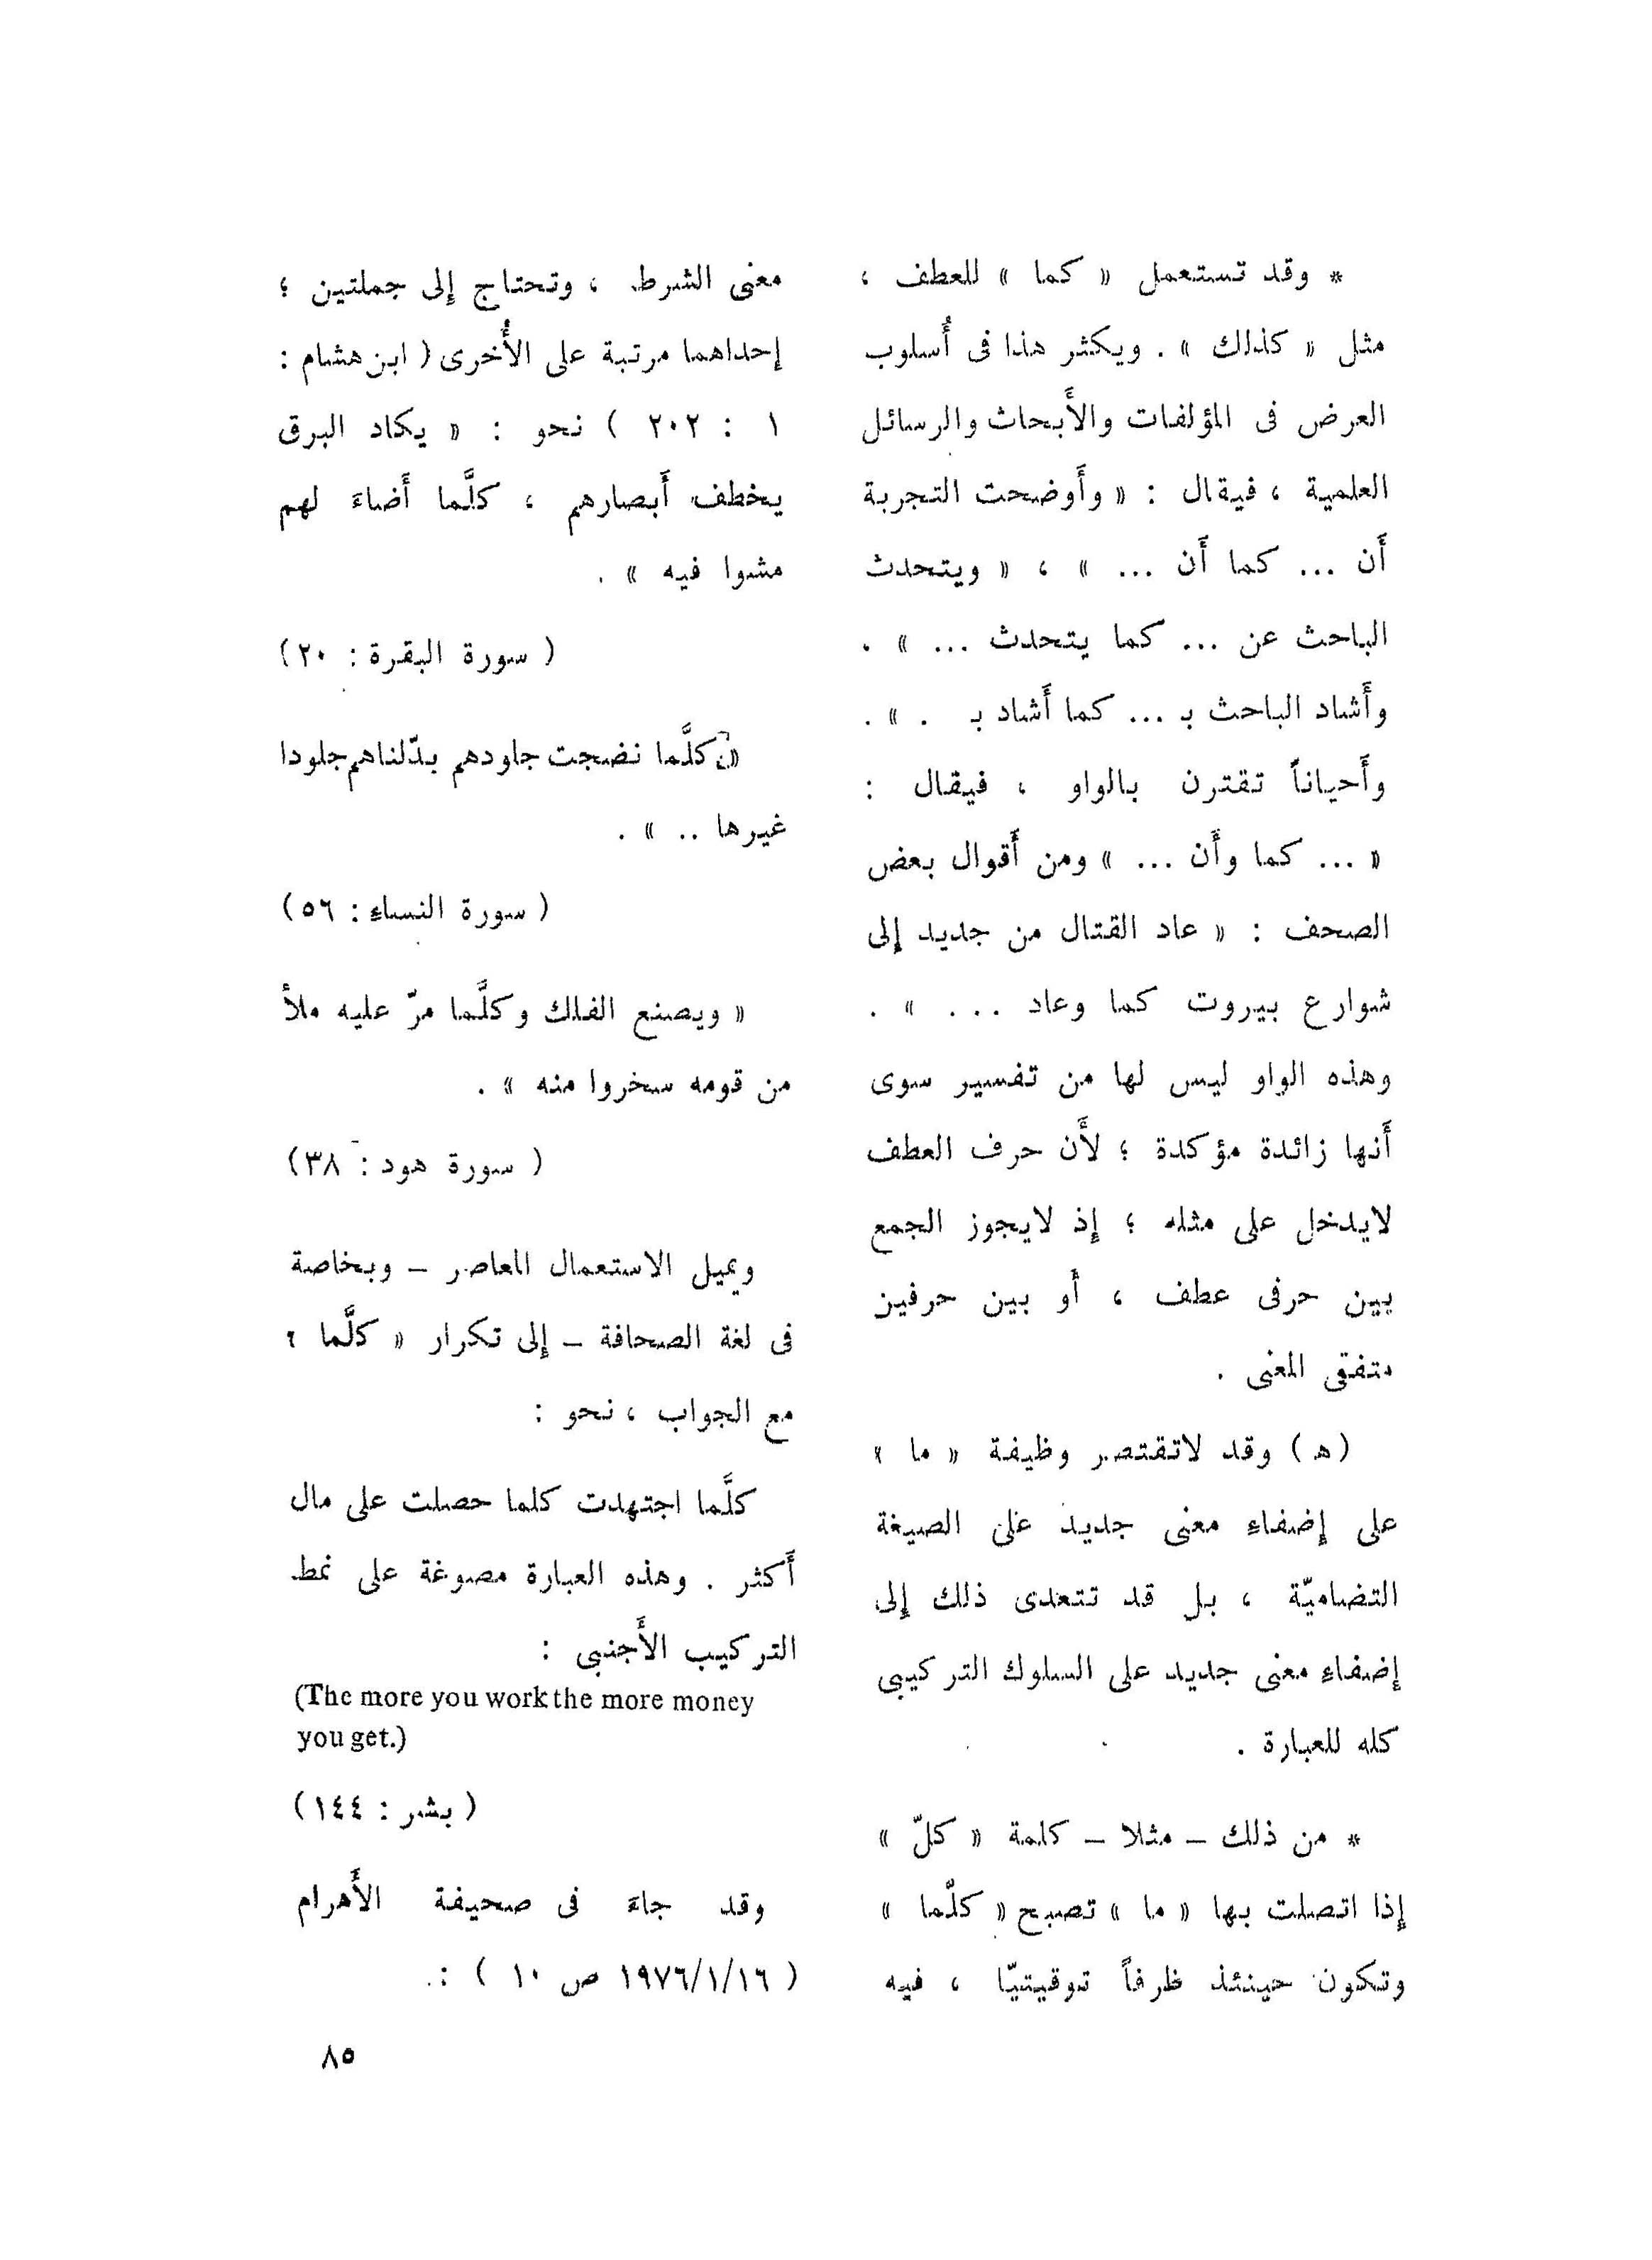 * وقد تستعمل « كما » للعطف ،
مثل « كذلك » . ويكثر هذا فى أُسلوب
العرض فى المؤلفات والأَبحاث والرسائل
العلمية ، فيقال : « وأَوضحت التجربة
أَن ... كما أَن ... » ، « ويتحدث
الباحث عن ... كما يتحدث ... » .
وأَشاد الباحث بـ ... كما أَشاد بـ . » .
وأَحياناً تقترن بالواو ، فيقال :
« ... كما وأَن ... » ومن أَقوال بعض
الصحف : « عاد القتال من جديد إلى
شوارع بيروت كما وعاد ... » .
وهذه الواو ليس لها من تفسير سوى
أَنها زائدة مؤكدة ؛ لأَن حرف العطف
لايدخل على مثله ؛ إذ لايجوز الجمع
بين حرفى عطف ، أَو بين حرفين
متفقى المعنى .
( ه ) وقد لاتقتصر وظيفة « ما »
على إضفاءِ معنى جديد على الصيغة
التضاميّة ، بل قد تتعدى ذلك إلى
إضفاءِ معنى جديد على السلوك التركيبى
كله للعبارة .
* من ذلك – مثلا – كلمة « كلّ »
إذا اتصلت بها « ما » تصبح « كلَّما »
وتكون حينئذ ظرفاً توقيتيّا ، فيه
معنى الشرط ، وتحتاج إلى جملتين ؛
إحداهما مرتبة على الأُخرى ( ابن هشام :
١ : ٢٠٢ ) نحو : « يكاد البرق
يخطف أَبصارهم ، كلَّما أَضاءَ لهم
مشوا فيه » .
( سورة البقرة : ٢٠ )
« كلَّما نضجت جلودهم بدّلناهم جلودا
غيرها .. » .
( سورة النساءِ : ٥٦ )
« ويصنع الفلك وكلَّما مرّ عليه ملأ
من قومه سخروا منه » .
( سورة هود : ٣٨ )
ويميل الاستعمال المعاصر – وبخاصة
فى لغة الصحافة – إلى تكرار « كلَّما »
مع الجواب ، نحو :
كلَّما اجتهدت كلما حصلت على مال
أَكثر . وهذه العبارة مصوغة على نمط
التركيب الأَجنبى :
(The more you work the more money
you get.)
( بشر : ١٤٤ )
وقد جاءَ فى صحيفة الأَهرام
( ١٩٧٦/١/١٦ ص ١٠ ) :
٨٥